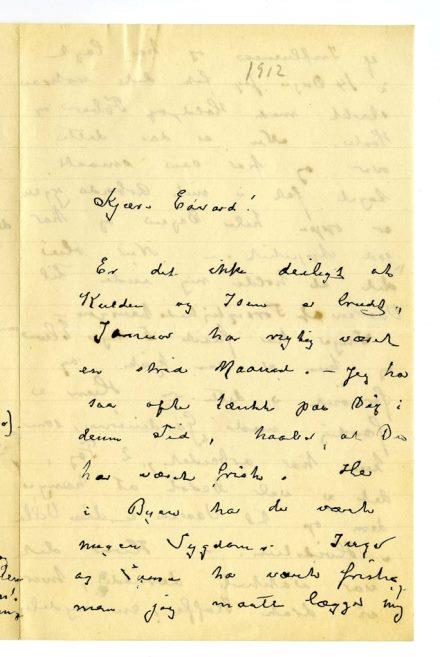 1912
Kjære Edvard!
Er det ikke deiligt at
Kulden og Isen er brudt,
Januar har rigtig været
en strid Maaned. – Jeg har
saa ofte tænkt paa Dig i
denne Tid, haaber, at Du
har været frisk. Her
i Byen har der været
megen Sygdom. Inger
og har været friske,
men jeg maatte lægge mig